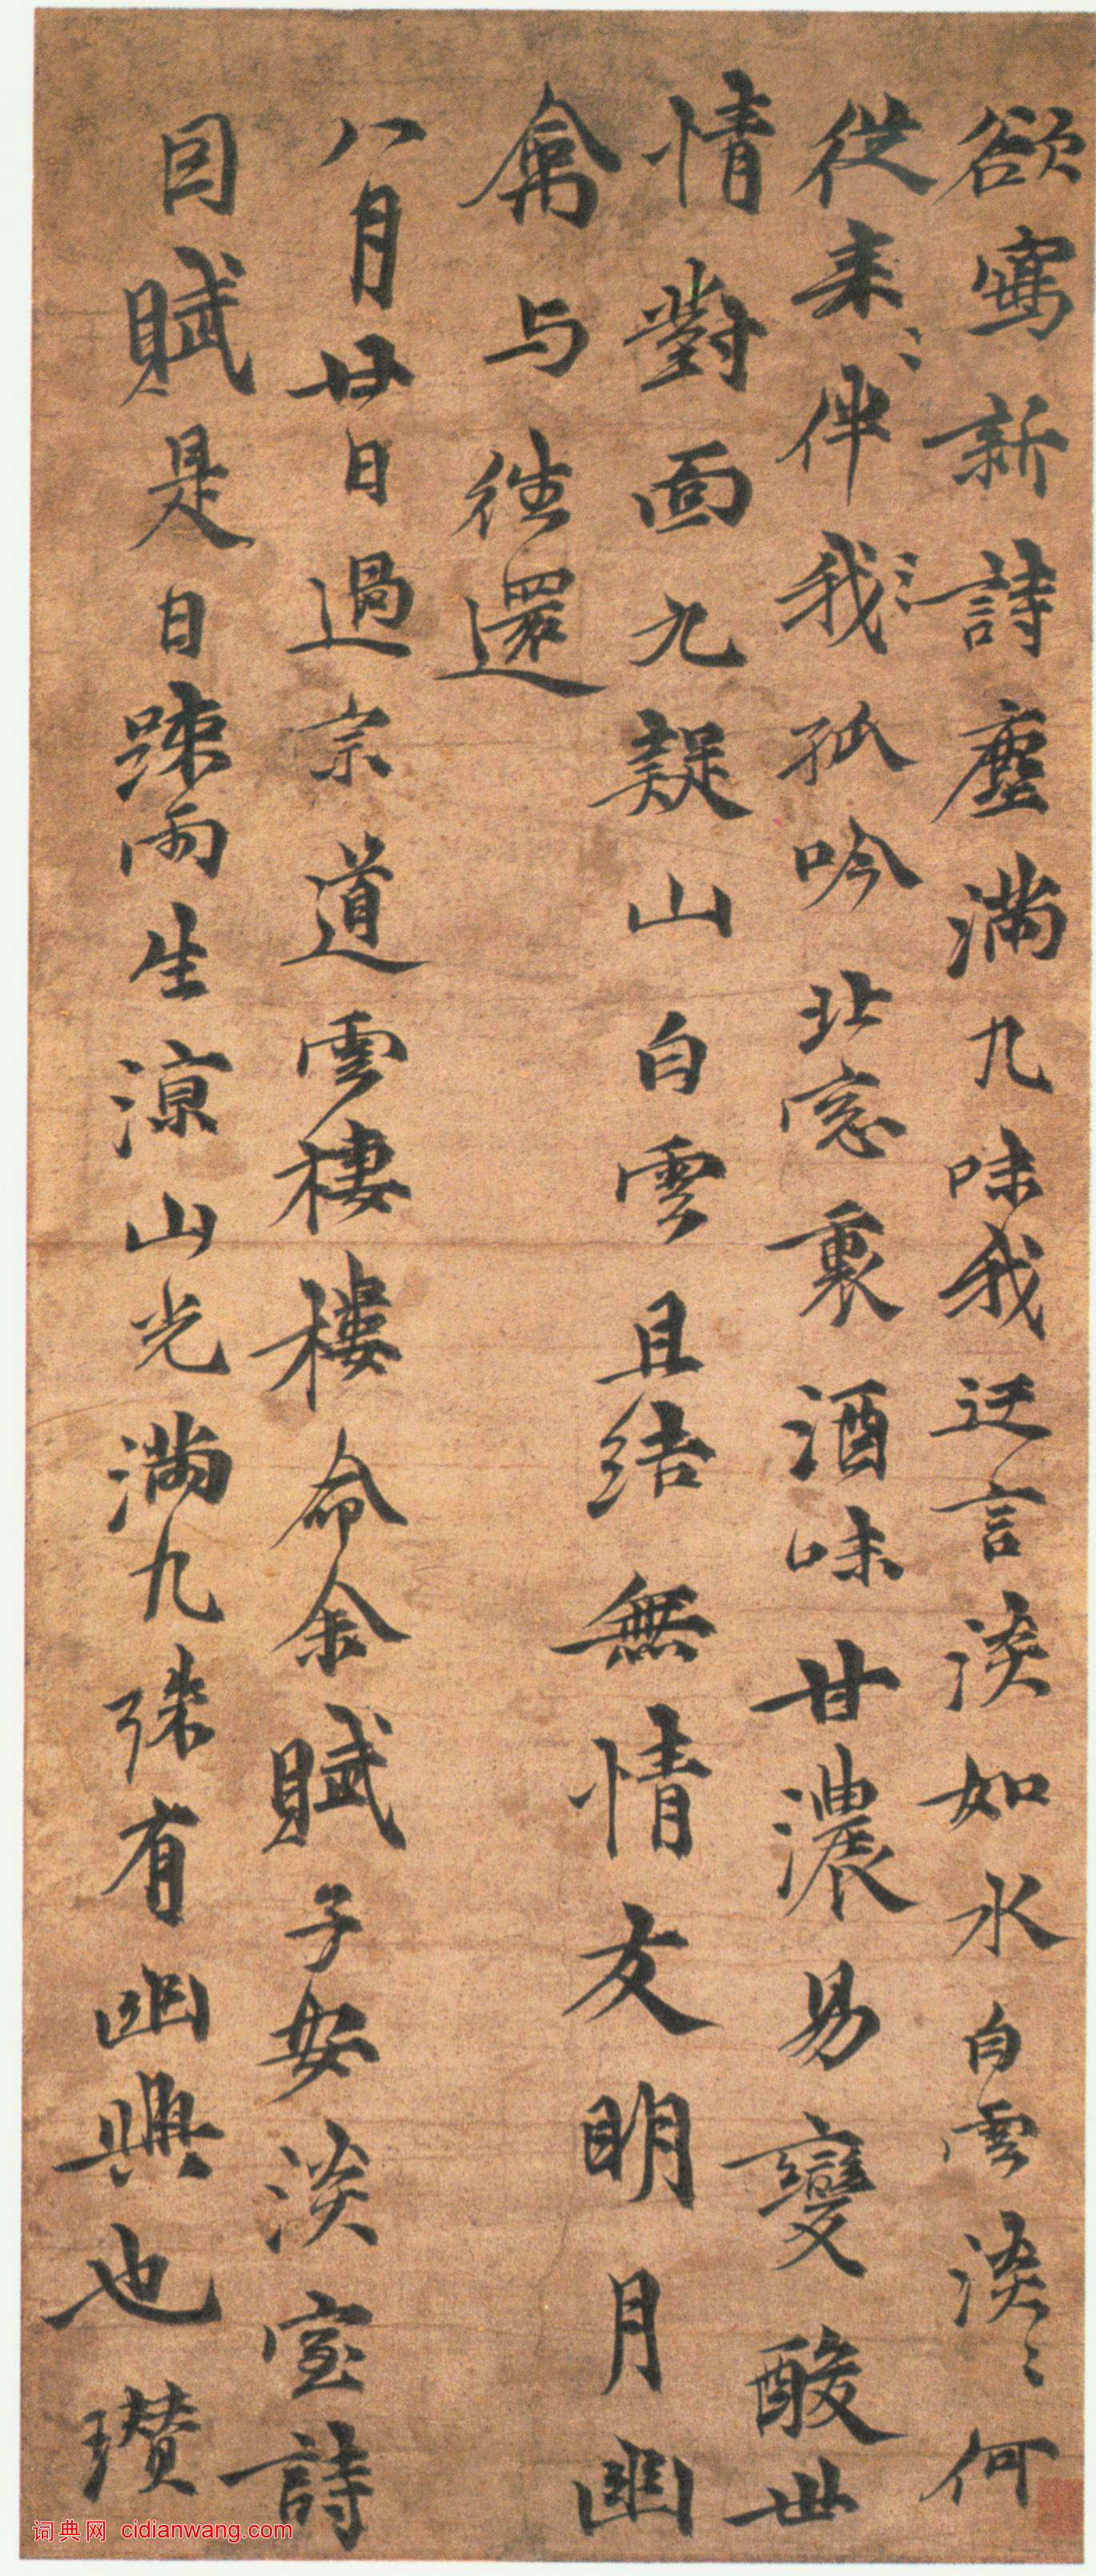 欲寫新詩塵滿九味我迂言淡如水白雲淡〻何
從来〻伴我〻孤吟北窓裏酒味甘濃易變酸世
情對面九疑山白雲且结無情友明月幽
禽与往還
八月廿日過宗道雲樓樓命余賦子安淡室詩
因賦是日踈雨生涼山光滿九殊有幽興也瓚
词典网 cidianwang.com